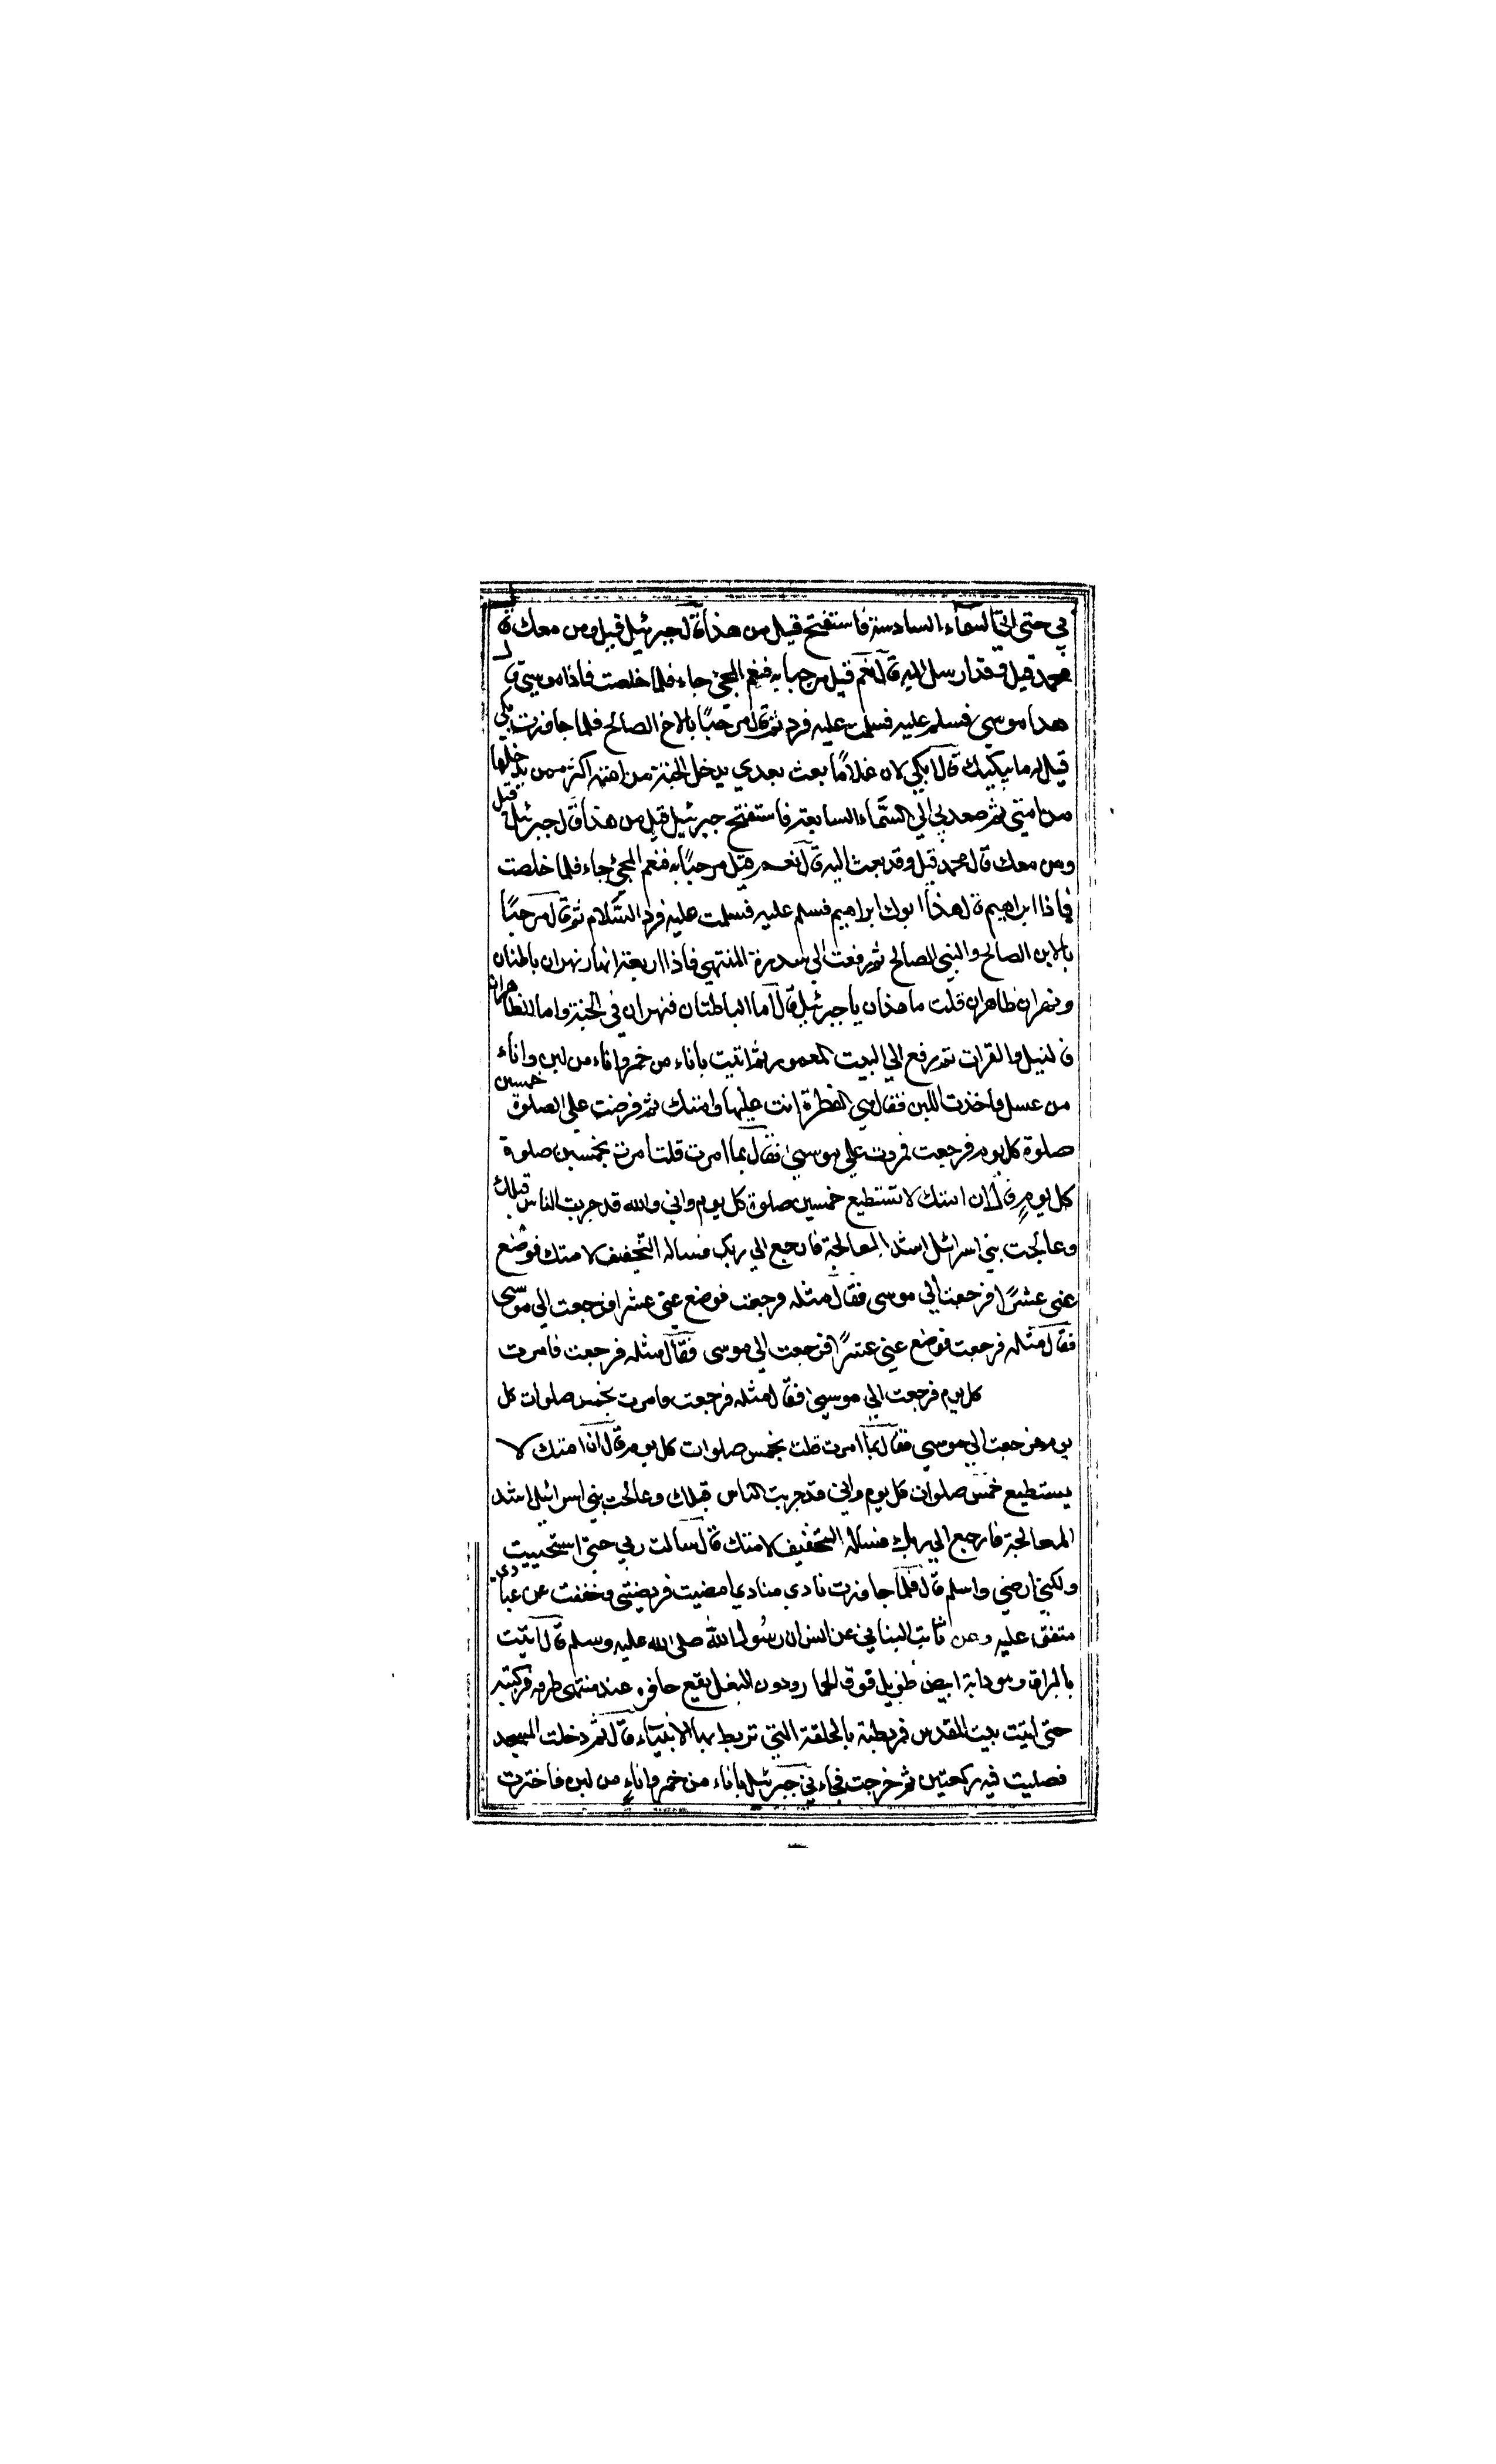 بي حتى اتي السماء السادسة فاستفتح قيل من هذا قال جبرئيل قيل ومن معك قال
محمد قيل وقد ارسل اليه قال نعم قيل مرحبا به فنعم المجئ جاء فلما خلصت فاذا موسى قال
هذا موسى فسلم عليه فسلمت عليه فرد ثم قال مرحبًا بالاخ الصالح فلما جاوزت بكي
قيل له ما يبكيك قال ابكي لان غلامًا بعث بعدي يدخل الجنة من امته اكثر ممن يدخلها
من امتي ثم صعد بي الي السَّماء السابعة فاستفتح جبرئيل قيل من هذا قال جبرئيل قيل
ومن معك قال محمد قيل وقد بعث اليه قال نعم قيل مرحبًا به فنعم المجئ جاء فلما خلصت
فاذا ابراهيم قال هذا ابوك ابراهيم فسلم عليه فسلمت عليه فرد السَّلام ثم قال مرحبًا
بالابن الصالح والنبي الصالح ثم رفعت الي سدرة المنتهي فاذا اربعة انهار نهران باطنان
ونهران ظاهران قلت ما هذان يا جبرئيل قال اما الباطنان فنهران في الجنة واما الظاهران
فالنيل والفرات ثم رفع الي البيت المعمور ثم اتيت باناء من خمر واناء من لبن واناء
من عسل فاخذت اللبن فقال هي الفطرة انت عليها وامتك ثم فرضت علي الصلوة خمسين
صلوة كل يوم فرجعت فمررت علي موسى فقال بما امرت قلت امرت بخمسين صلوة
كل يوم قال ان امتك لا تستطيع خمسين صلوة كل يوم واني والله قد جربت الناس قبلك
وعالجت بني اسرائيل اشد المعالجة فارجع الي ربك فسأله التخفيف لامتك فوضع
عني عشرًا فرجعت الي موسى فقال مثله فرجعت فوضع عني عشرا فرجعت الي موسى
فقال مثله فرجعت فوضع عني عشرًا فرجعت الي موسى فقال مثله فرجعت فامرت
كل يوم فرجعت الي موسى فقال مثله فرجعت وامرت بخمس صلوات كل
يوم فرجعت الي موسى فقال بما امرت قلت بخمس صلوات كل يوم قال ان امتك لا
يستطيع خمس صلوات كل يوم واني قد جربت الناس قبلك وعالجت بني اسرائيل اشد
المعالجة فارجع الي ربك فسأله التخفيف لامتك قال سالت ربي حتى استحييت
ولكني ارضي واسلم قال فلما جاوزت نادي منادي امضيت فريضتي وخففت عن عبادي
متفق عليه وعن ثابت البناني عن انس ان رسُول الله صلى الله عليه وسلم قال اتيت
بالبراق وهو دابة ابيض طويل فوق الحمار ودون البغل يقع حافره عند منتهى طرفه فركبته
حتى اتيت بيت المقدس فربطته بالحلقة التي تربط بها الانبياء قال ثم دخلت المسجد
فصليت فيه ركعتين ثم خرجت فجاءني جبرئيل باناء من خمر واناءٍ من لبن فاخترت